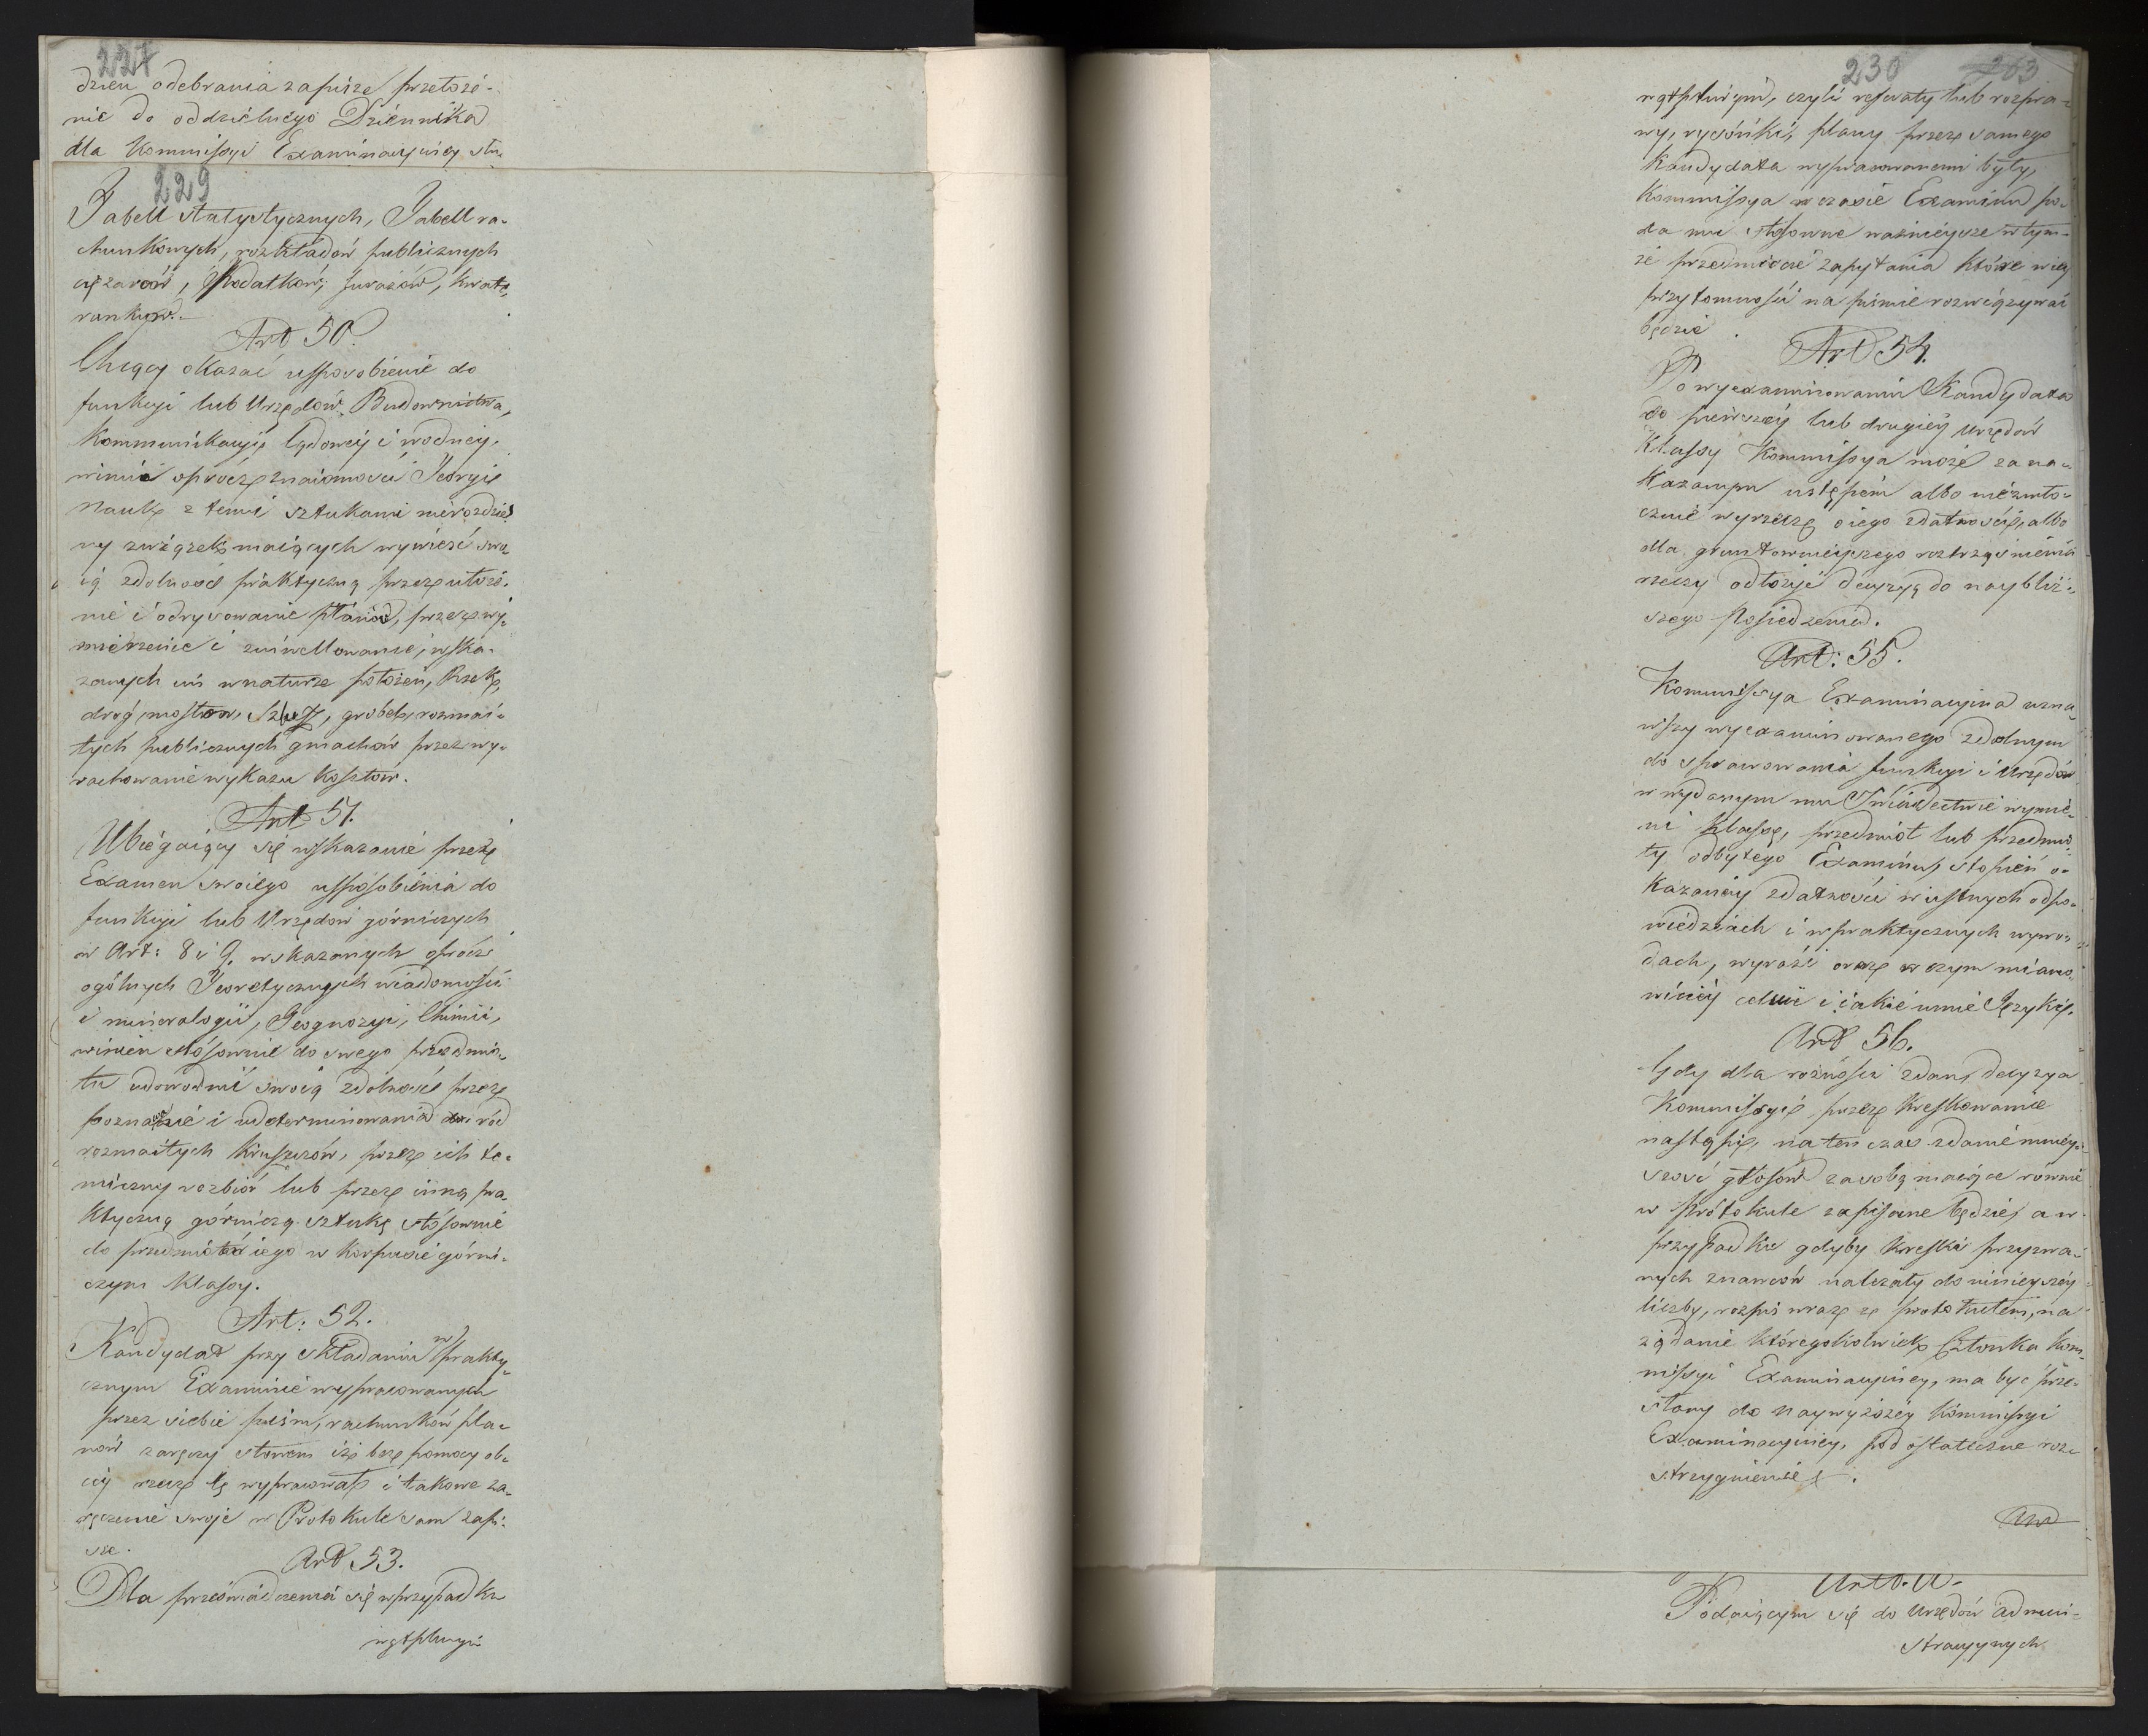 227
dzień odebrania zapisze przełoże-
nie do oddzielnego Dziennika
dla Kommissyi Examinacyiney słu-
229
Tabell statystycznych, Tabell ra-
chunkowych, rozkładów publicznych
ciężarów, Podatków, furażów, kwate-
runków.
Art 50.
Chcący okazać usposobienie do
funkcyi lub Urzędów Budownictwa,
Kommunikacyi lądowey i wodney,
winni oprócz znaiomości Teoryi
Nauk z temi sztukami nierozdziel
ny związek maiących wywieść swo
ią zdolność praktyczną przez ułoże-
nie i odrysowanie planów, przez wy-
mierzenie i zniwellowanie, wska-
zanych im w naturze położeń, Rzek,
dróg, mostów, szluz, grobel, rozmai-
tych publicznych gmachów przez wy-
rachowanie wykazu kosztów.
Art 51.
Ubiegaiący się w skazanie przez
Examen swoiego usposobienia do
funkcyi lub Urzędów górniczych
w Art: 8 i 9. wskazanych oprócz
ogólnych Teoretycznych wiadomości
i mineralogii, Geognozyi, Chimii,
winien stósownie do swego przedmio-
tu udowodnić swoią zdolność przez
poznanie i udeterminowania ród
rozmaitych kruszców, przez ich che-
miczny rozbiór lub przez inną pra-
ktyczną górniczą sztukę stósownie
do przedmiotów iego w Korpusie górni-
czym klassy.
Art: 52.
Kandydat przy składaniu w prakty-
cznym Examinie wypracowanych
przez siebie pism, rachunków pla-
nów zaręczy słowem iż bez pomocy ob-
cey rzecz tę wypracował i takowe za-
ręczenie swoje w Protokule sam zapi-
sze.
Art 53.
Dla przeświadczenia się w przypadku
wątpliwym
230
203
wątpliwym, czyli referaty lub rozpra-
wy, rysunki, plany przez samego
Kandydata wypracowanemi były,
Kommissya w czasie Examinu po-
da mu stosowne ważnieysze w tym-
że przedmiocie zapytania które w iey
przytomności na piśmie rozwiązywać
będzie.
Art 54.
Po wyexaminowaniu Kandydata
do pierwszey lub drugiey Urzędów
Klassy Kommissya może za na-
kazanym ustępem albo niezwło-
cznie wyrzecz o iego zdatności, albo
dla gruntownieyszego roztrząśnienia
rzeczy odłożyć decyzyą do naybliż-
szego Posiedzenia.
Art: 55.
Kommissya Examinacyina uzna-
wszy wyexaminowanego zdolnym
do sprawowania funkcyi i Urzędów
w wydanym mu Świadectwie wymie-
ni klassę, przedmiot lub przedmio-
ty odbytego Examinu, stopień o-
kazaney zdatności w ustnych odpo-
wiedziach i w praktycznych wywo-
dach, wyrazi oraz w czym miano-
wiciey celuie i iakie umie Języki.
Art 56.
Gdy dla rożności zdań, decyzya
Kommissyi przez Kreskowanie
nastąpi, na ten czas zdanie mniey-
szość głosów za sobą maiące równie
w Protokule zapisane będzie, a w
przypadku gdyby kreski przyzwa-
nych znawców należały do mnieyszey
liczby, rozpis wraz z protokułem, na
żądanie któregokolwiek Członka Kom-
missyi Examinacyiney, ma być prze-
słany do naywyższey Kommissyi
Examinacyiney, pod ostateczne roz-
strzygnienie.
Art
Podaiącym się do Urzędów admini-
stracyynych